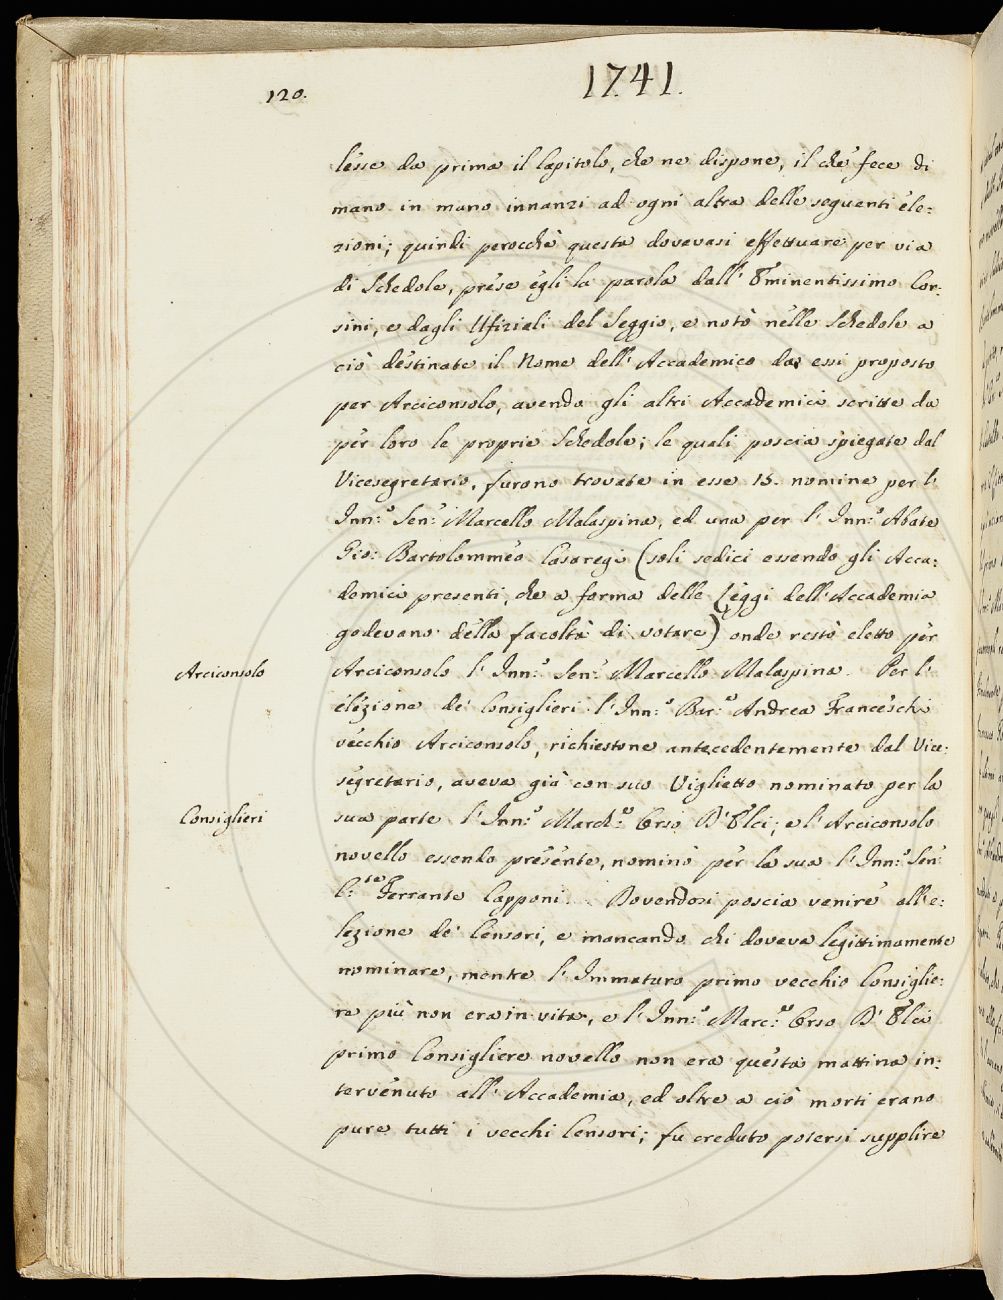 120.
1741.
lesse da prima il Capitolo, che ne dispone, il chè fece di
mano in mano innanzi ad ogni altra delle seguenti ele:
zioni; quindi perocchè questa dovevasi effettuare per via
di Schedole, prese egli la parola dall' Eminentissimo Cor:
sini, e dagli Ufiziali del Seggio, e notò nelle Schedole a
ciò destinate il Nome dell' Accademico da essi proposto
per Arciconsolo, avendo gli altri Accademici scritte da
per loro le proprie Schedole; le quali poscia spiegate dal
Vicesegretario, furono trovate in esse 15. nomine per l'
Inn:º Sen:e Marcello Malaspina, ed una per l' Inn:º Abate
Gio: Bartolommeo Casaregi (soli sedici essendo gli Acca:
demici presenti, che a forma delle Leggi dell' Accademia
godevano della facoltà di votare) onde restò eletto per
Arciconsolo
Arciconsolo l' Inn:º Sen:e Marcello Malaspina. Per l'
elezione de' Consiglieri l' Inn:º Bar:e Andrea Franceschi
vecchio Arciconsolo, richiestone antecedentemente dal Vice:
segretario, aveva già con suo Viglietto nominato per la
Consiglieri
sua parte l' Inn:º March:e Orso D' Elci; e l' Arciconsolo
novello essendo presente, nominò per la sua l' Inn:º Sen:
C:te Ferrante Capponi. Dovendosi poscia venire all' e:
lezione de' Censori, e mancando chi doveva legittimamente
nominare, mentre l' Immaturo primo vecchio Consiglie:
re più non era in vita, e l' Inn:º Marc:e Orso D' Elci
primo Consigliere novello non era questa mattina in:
tervenuto all' Accademia, ed oltre a ciò morti erano
pure tutti i vecchi Censori; fu creduto potersi supplire